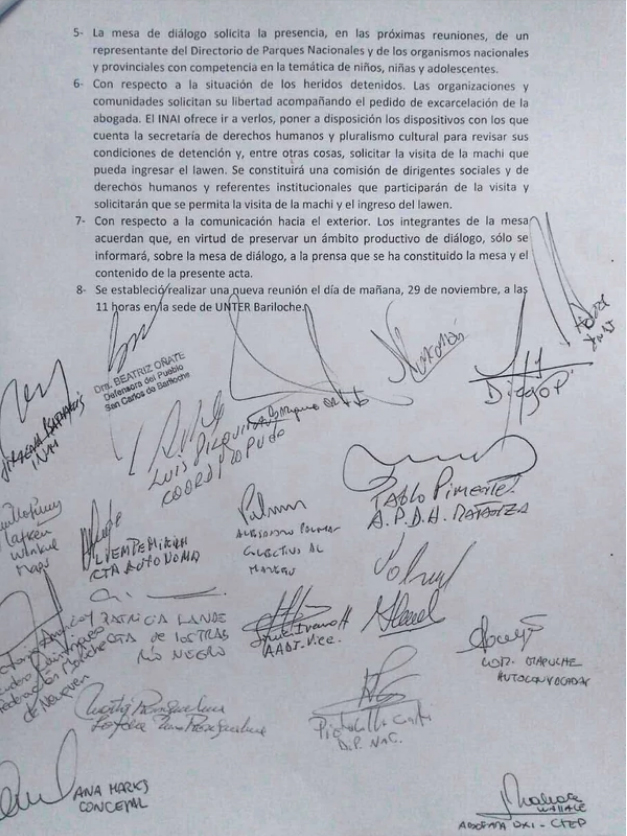 5- La mesa de diálogo solicita la presencia, en las próximas reuniones, de un
representante del Directorio de Parques Nacionales y de los organismos nacionales
y provinciales con competencia en la temática de niños, niñas y adolescentes.
6- Con respecto a la situación de los heridos detenidos. Las organizaciones y
comunidades solicitan su libertad acompañando el pedido de excarcelación de la
abogada. El INAI ofrece ir a verlos, poner a disposición los dispositivos con los que
cuenta la secretaría de derechos humanos y pluralismo cultural para revisar sus
condiciones de detención y, entre otras cosas, solicitar la visita de la machi que
pueda ingresar el lawen. Se constituirá una comisión de dirigentes sociales y de
derechos humanos y referentes institucionales que participarán de la visita y
solicitarán que se permita la visita de la machi y el ingreso del lawen.
7- Con respecto a la comunicación hacia el exterior. Los integrantes de la mesa
acuerdan que, en virtud de preservar un ámbito productivo de diálogo, sólo se
informará, sobre la mesa de diálogo, a la prensa que se ha constituido la mesa y el
contenido de la presente acta.
8- Se estableció realizar una nueva reunión el día de mañana, 29 de noviembre, a las
11 horas en la sede de UNTER Bariloche.
Dra. BEATRIZ OÑATE
Defensora del Pueblo
San Carlos de Bariloche
Diego P.
INAI
LUIS
PABLO Pimentel
A.P.D.H. MATANZA
CTA AUTONOMA
Colectivo Al
Margen
PATRICIA
CTA de los TRAB
RÍO NEGRO
AADI. Vice.
de Neuquén
AUTOCONVOCADAS
DIP. NAC.
ANA MARKS
- CTEP